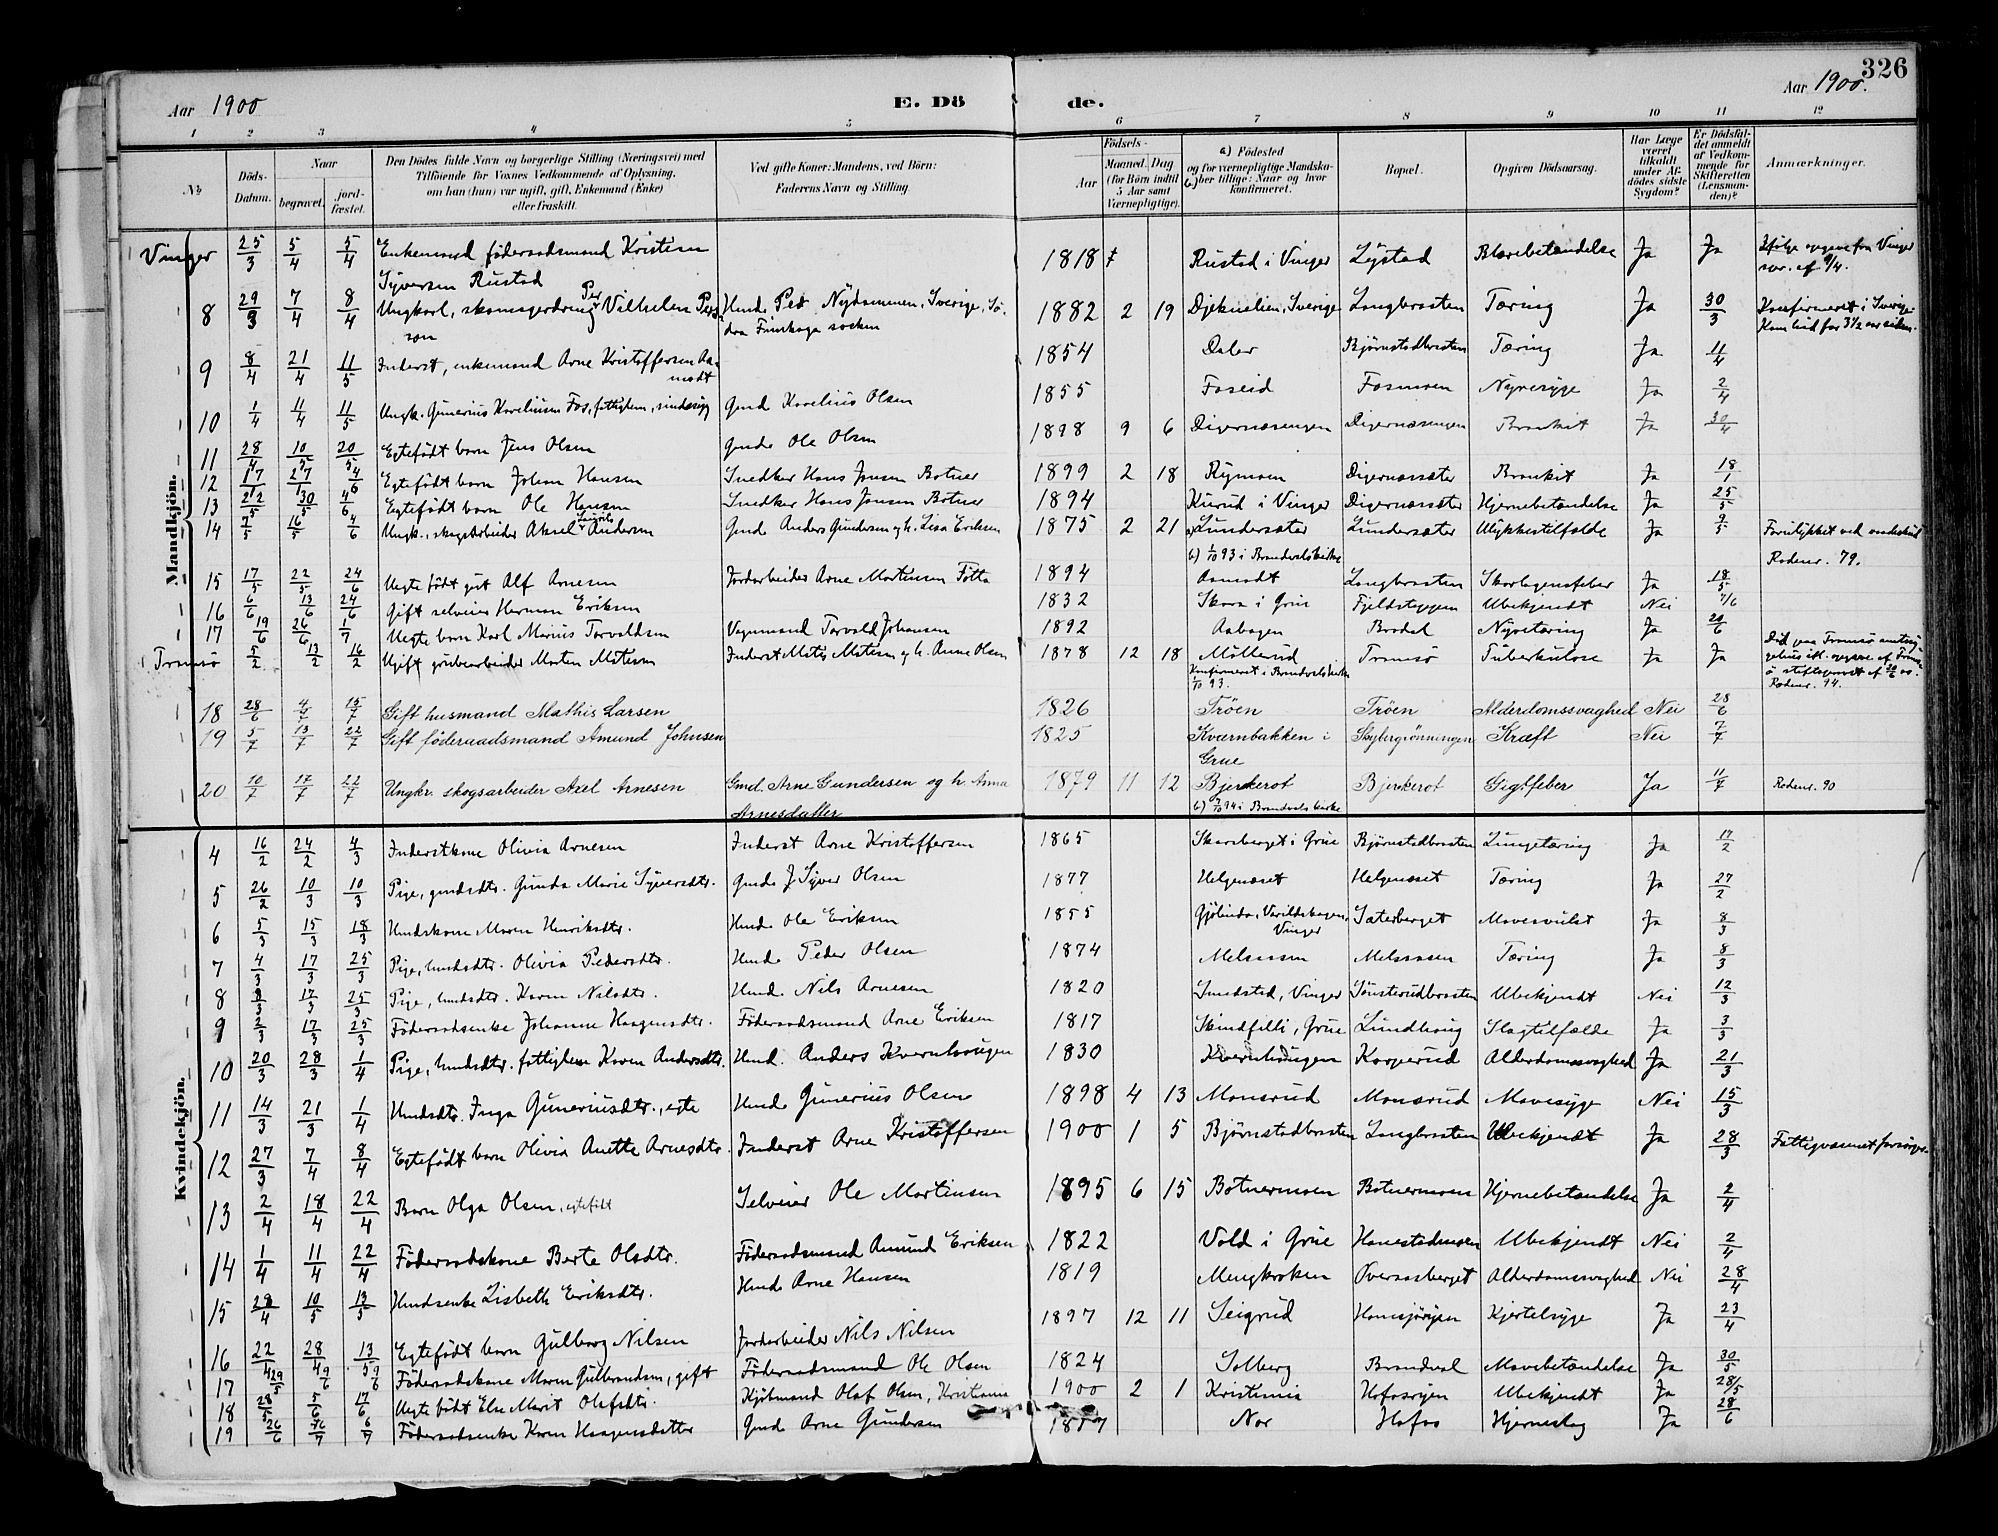 326
Aar 1900 E. Dö de. Aar 1900.
1 2 3 4 5 6 7 8 9 10 11 12
№ Döds-Datum. Naar begravet. jord-fæstet. Den Dödes fulde Navn og borgerlige Stilling (Næringsvei) med Tilföiende for Voxnes Vedkommende af Oplysning, om han (hun) var ugift, gift, Enkemand (Enke) eller fraskilt. Ved gifte Koner: Mandens, ved Börn: Faderens Navn og Stilling. Födsels- Aar Maaned Dag (for Börn indtil 5 Aar samt Værnepligtige). a) Födested og for værnepligtige Mandska- b) ber tillige: Naar og hvor konfirmeret. Bopæl. Opgiven Dödsaarsag. Har Læge været tilkaldt under Af-dödes sidste Sygdom? Er Dödsfal-det anmeldt af Vedkom-mende for Skifteretten (Lensman-den)? Anmærkninger.
Mandkjön.
Vinger 25/3 5/4 5/4 Enkemand föderaadsmand Kristian Syversen Rustad 1818 Rustad i Vinger Lystad Blærebetændelse Ja Ja Ifølge opgave fra Vinger sor. af 9/4.
8 29/3 7/4 8/4 Ungkarl, skomagerdreng Per Vilhelm Persson Hmd. Per Nydammen, Sverige, Södra Finskoga socken 1882 2 19 Djekneliен, Sverige Langbrosten Tæring Ja 30/3 Konfirmeret i Sverige. Kom hid for 3½ aar siden.
9 8/4 21/4 11/5 Inderst, enkemand Arne Kristoffersen Aamodt 1854 Daler Bjørnstadbrosten Tæring Ja 11/4
10 1/4 11/4 11/5 Ungk. Gunerius Korelius­sen Fos, fattiglem, sindssyg Gmd Korelius Olsen 1855 Foseid Fosmoen Nyresyge Ja 2/4
11 28/4 10/5 20/5 Egtefödt barn Jens Olsen Gmd. Ole Olsen 1898 9 6 Digernæsengen Digernæsengen Bronkit Ja 30/4
12 17/1 27/1 4/6 Egtefödt barn Johan Hansen Snedker Hans Jensen Botner 1899 2 18 Rymoen Digernæssæter Bronkit Ja 18/1
13 22/5 30/5 4/6 Egtefödt barn Ole Hansen Snedker Hans Jensen Botner 1894 Kurud i Vinger Digernæssæter Hjernebetændelse Ja 25/5
14 7/5 16/5 4/6 Ungk., skogsarbeider Aksel Andersen Gmd Anders Gundersen og h. Lisa Eriksen 1875 2 21 a) Lundersæter Lundersæter Ulykkestilfælde Ja 9/5
b) 1/10 93 i Brandvals kirke Rodenr. 79.
15 17/5 22/5 24/6 Uegte födt gut Alf Arnesen Jordarbeider Arne Mortinsen Totta 1894 Aamodt Langbrosten Skarlagensfeber Ja 18/5
16 6/6 13/6 24/6 Gift selveier Herman Eriksen 1832 Skara i Grue Fjeldsteggen Ubekjendt Nei 7/6
17 19/6 26/6 1/7 Uegte barn Karl Marius Torvaldsen Vognmand Torvald Johansen 1892 Aabogen Brodal Nyretæring Ja 20/6
Tromsø 5/2 13/2 16/2 Ugift grubearbeider Morten Matisen Inderst Matis Matisen og h. Anne Olsen 1878 12 18 Möllerud Tromsø Tuberkulose Ja Ja Död paa Tromsø amtssygehus
Konfirmeret i Brandvals kirke 1/10 93. Rodenr. 94.
18 28/6 4/7 15/7 Gift husmand Mathis Larsen 1826 Tröen Tröen Alderdomssvaghed Nei 28/6
19 5/7 13/7 22/7 Gift föderaadsmand Amund Johnsen 1825 Kværnbakken i Grue Skybergrönningen Kræft Nei 7/7
20 10/7 17/7 22/7 Ungkr. skogsarbeider Axel Arnesen Gmd. Arne Gundersen og h. Anna Arnesdatter 1879 11 12 Bjerkerot Bjerkerot Gigtfeber Ja 11/7 Rodenr. 90
b) 94 i Brandvals kirke
Kvindekjön.
4 16/2 24/2 4/3 Inderstkone Olivia Arnesen Inderst Arne Kristoffersen 1865 Skarsberget i Grue Bjørnstadbrosten Lungetæring Ja 17/2
5 26/2 10/3 10/3 Pige, gmdsdtr. Gunda Marie Syversdtr. Gmd. Syver Olsen 1877 Helgenæset Helgenæset Tæring Ja 27/2
6 5/3 15/3 18/3 Hmdskone Maren Henriksdtr. Hmd. Ole Eriksen 1855 Vinger Sæterberget Mavesvulst Ja 8/3
7 4/3 17/3 25/3 Pige, hmdsdtr. Olivia Pedersdtr. Hmd. Peder Olsen 1874 Melsaasen Melsaasen Tæring Ja 8/3
8 8/3 17/3 25/3 Pige, hmdsdtr. Karen Nilsdtr. Hmd. Nils Arnesen 1820 Smedstad, Vinger Sönsterudbrosten Ubekjendt Nei 12/3
9 2/3 17/3 25/3 Föderaadsenke Johanne Haagensdtr. Föderaadsmand Arne Eriksen 1817 Skindfilli, Grue Lundhaug Slagtilfælde Ja 3/3
10 20/3 28/3 1/4 Pige, hmdsdtr. fattiglem Karen Andersdtr. Hmd. Anders Kvernhaugen 1830 Kvernhaugen Korperud Alderdomssvaghed Ja 21/3
11 14/3 21/3 1/4 Hmdsdtr. Inga Guneriusdtr., egte Hmd. Gunerius Olsen 1898 4 13 Monsrud Monsrud Mavesyge Nei 15/3
12 27/3 7/4 8/4 Egtefödt barn Olivia Anette Arnesdtr. Inderst Arne Kristoffersen 1900 1 5 Bjørnstadbrosten Langbrosten Ubekjendt Ja 28/3
13 2/4 18/4 22/4 Barn Olga Olsen, egtefödt Selveier Ole Martinsen 1895 6 15 Botnermoen Botnermoen Hjernebetændelse Ja 2/4
14 1/4 11/4 22/4 Föderaadskone Berte Olsdtr. Föderaadsmand Amund Eriksen 1822 Vold i Grue Hanestadmoen Ubekjendt Nei 2/4
15 28/4 10/5 13/5 Hmdsenke Lisbeth Eriksdtr. Hmd. Arne Hansen 1819 Mengkroken Overaasberget Alderdomssvaghed Nei 28/4
16 22/4 28/4 13/5 Egtefödt barn Gulborg Nilsen Jordarbeider Nils Nilsen 1897 12 11 Seigrud Kjertelsyge Ja 23/4
17 29/5 9/6 9/6 Föderaadskone Maren Gulbrandsen, gift Föderaadsmand Ole Olsen 1824 Solberg Brandval Mavebetændelse Ja 30/5
18 28/5 5/6 17/6 Uegte födt Else Marit Olafsdtr. Kjölmand Olaf Olsen, Kristiania 1900 2 1 Kristiania Hofosøyen Ubekjendt Ja 28/5
19 26/6 6/7 6/7 Föderaadsenke Karen Haagensdatter Gmd. Arne Gundersen Nor Hofos Hjerneslag Ja 28/6